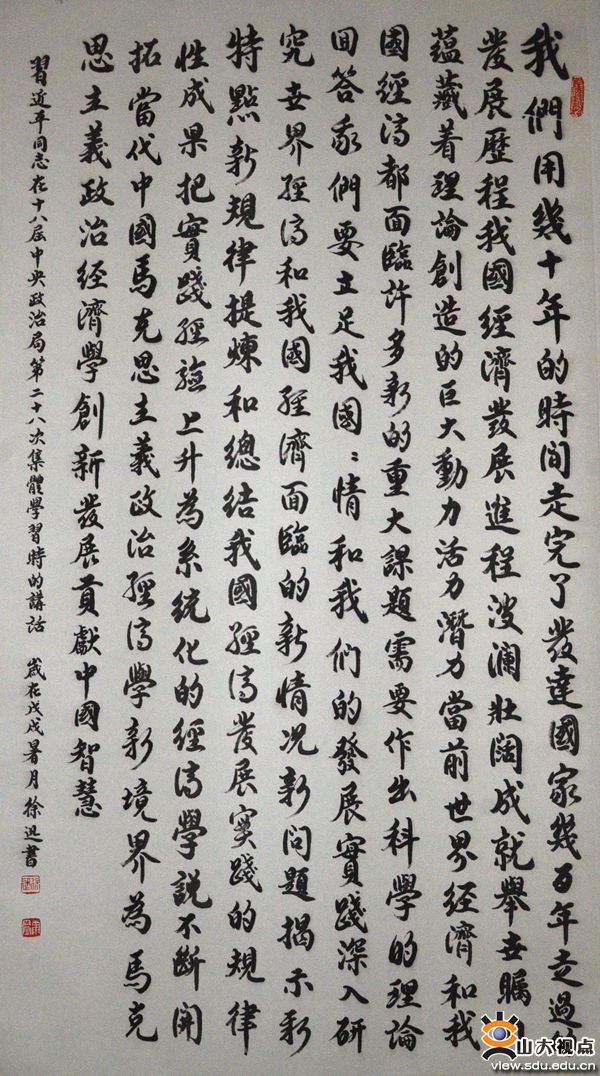 我們用幾十年的時間走完了發達國家幾百年走過的
發展歷程我國經濟發展進程波瀾壯闊成就舉世矚目
蘊藏着理論創造的巨大動力活力潛力當前世界經濟和我
國經濟都面臨許多新的重大課題需要作出科學的理論
回答我們要立足我國〻情和我们的發展實踐深入研
究世界經濟和我國經濟面臨的新情况新問題揭示新
特點新規律提煉和總結我國經濟發展實踐的規律
性成果把實踐經驗上升為系统化的經濟學說不断開
拓當代中國馬克思主義政治經濟學新境界為馬克
思主義政治經濟學創新發展貢獻中國智慧
習近平同志在十八屆中央政治局第二十八次集體學習時的講話 歲在戊戌暑月徐書
山大视点
view.sdu.edu.cn